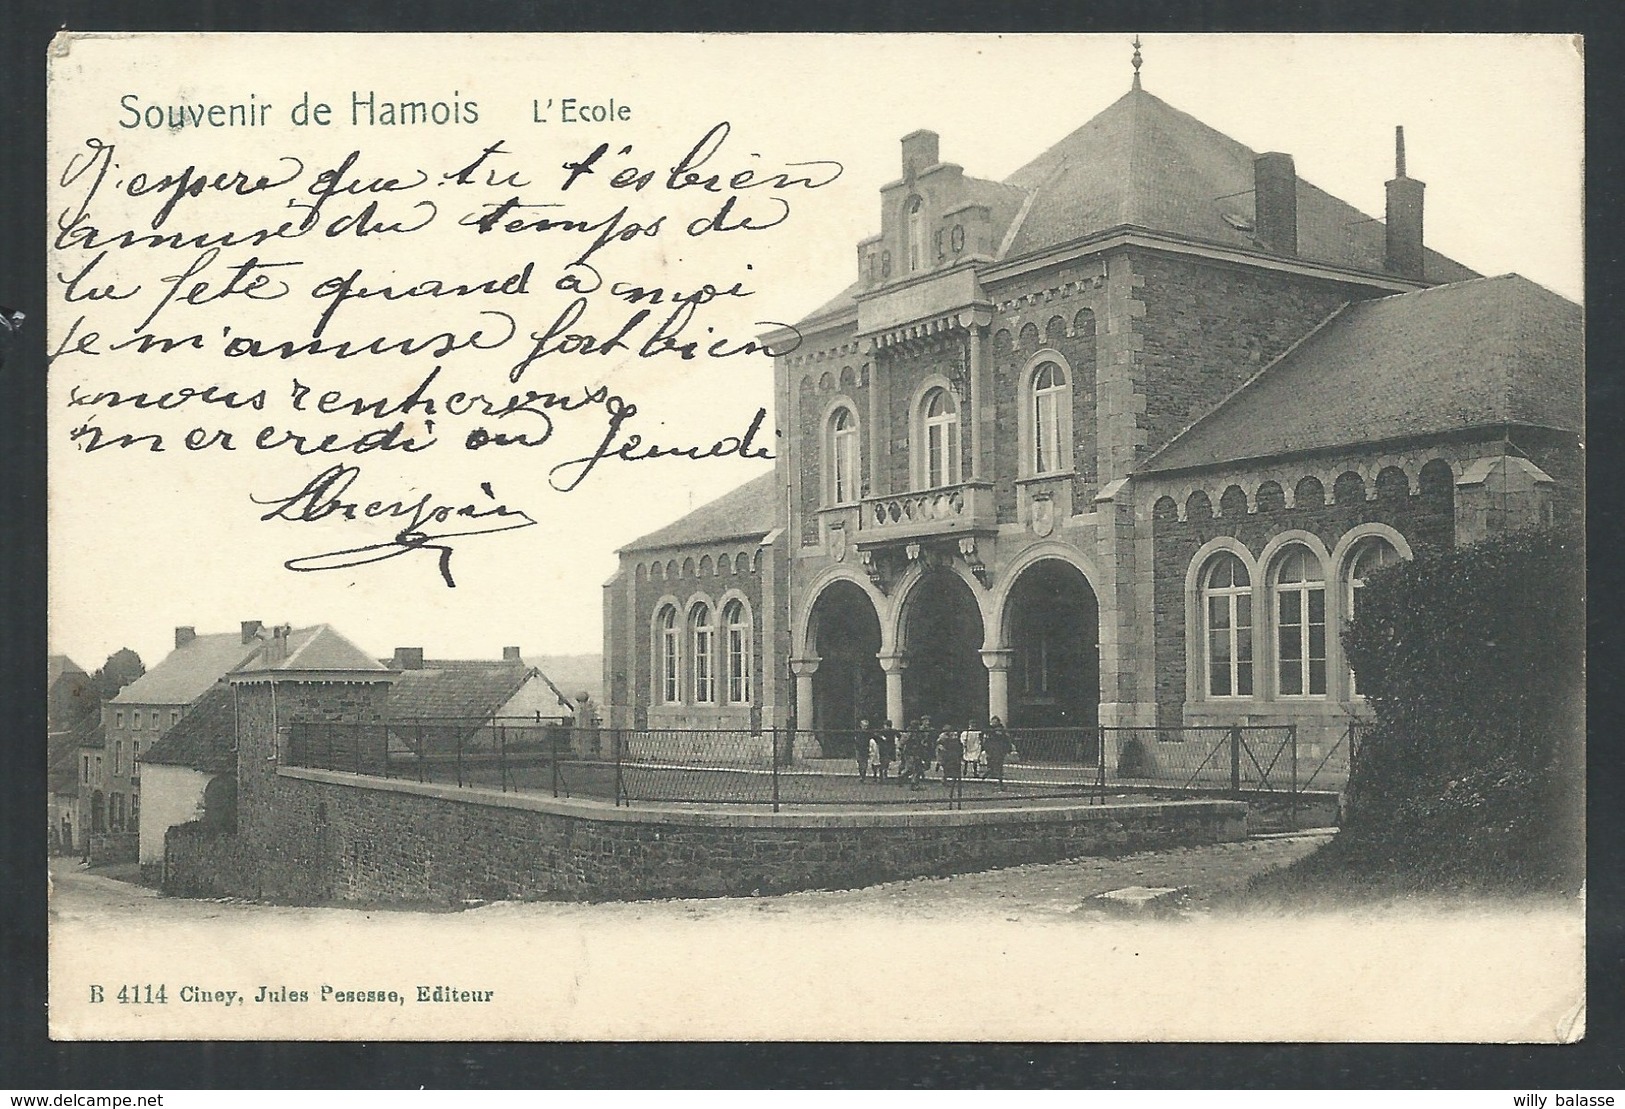 Souvenir de Hamois L'Ecole
J'espere que tu t'es bien
amusé du temps de
la fete quand a moi
je m'amuse fort bien
nous rentrerons
mercredi ou Jeudi
Crespin
18 10
B 4114 Ciney, Jules Pesesse, Editeur
willy balasse